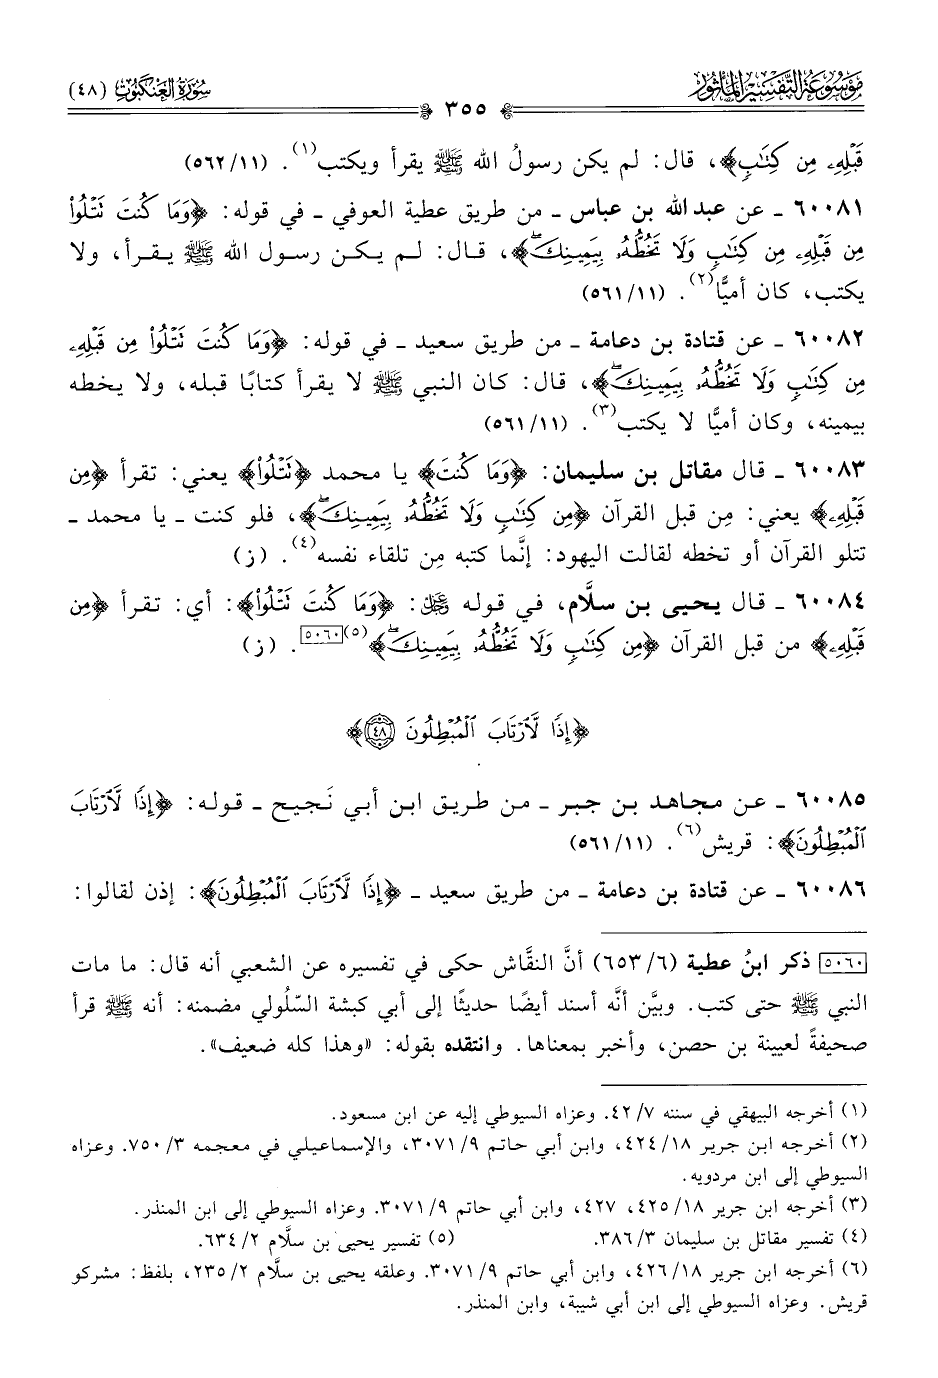 موسوعة التفسير المأثور
سورة العنكبوت (٤٨)
٣٥٥
قَبْلِهِۦ مِن كِتَٰبٍ﴾، قال: لم يكن رسولُ الله ﷺ يقرأ ويكتب(١). (١١/ ٥٦٢)
٦٠٠٨١ ـ عن عبد الله بن عباس ـ من طريق عطية العوفي ـ في قوله: ﴿وَمَا كُنتَ تَتْلُوا۟
مِن قَبْلِهِۦ مِن كِتَٰبٍ وَلَا تَخُطُّهُۥ بِيَمِينِكَۖ﴾، قـال: لـم يـكـن رسـول الله ﷺ يـقـرأ، ولا
يكتب، كان أميًّا(٢). (١١/ ٥٦١)
٦٠٠٨٢ ـ عن قتادة بن دعامة ـ من طريق سعيد ـ في قوله: ﴿وَمَا كُنتَ تَتْلُوا۟ مِن قَبْلِهِۦ
مِن كِتَٰبٍ وَلَا تَخُطُّهُۥ بِيَمِينِكَۖ﴾، قال: كان النبي ﷺ لا يقرأ كتابًا قبله، ولا يخطه
بيمينه، وكان أميًّا لا يكتب(٣). (١١/ ٥٦١)
٦٠٠٨٣ ـ قال مقاتل بن سليمان: ﴿وَمَا كُنتَ﴾ يا محمد ﴿تَتْلُوا۟﴾ يعني: تقرأ ﴿مِن
قَبْلِهِۦ﴾ يعني: مِن قبل القرآن ﴿مِن كِتَٰبٍ وَلَا تَخُطُّهُۥ بِيَمِينِكَۖ﴾، فلو كنت ـ يا محمد ـ
تتلو القرآن أو تخطه لقالت اليهود: إنَّما كتبه مِن تلقاء نفسه(٤). (ز)
٦٠٠٨٤ ـ قال يحيى بن سلَّام، في قوله ﷿: ﴿وَمَا كُنتَ تَتْلُوا۟﴾: أي: تقرأ ﴿مِن
قَبْلِهِۦ﴾ من قبل القرآن ﴿مِن كِتَٰبٍ وَلَا تَخُطُّهُۥ بِيَمِينِكَۖ﴾(٥) ٥٠٦٠. (ز)
﴿إِذًا لَّٱرْتَابَ ٱلْمُبْطِلُونَ ٤٨﴾
٦٠٠٨٥ ـ عـن مجاهد بن جبر ـ مـن طـريـق ابن أبي نَجيح ـ قوله: ﴿إِذًا لَّٱرْتَابَ
ٱلْمُبْطِلُونَ﴾: قريش(٦). (١١/ ٥٦١)
٦٠٠٨٦ ـ عن قتادة بن دعامة ـ من طريق سعيد ـ ﴿إِذًا لَّٱرْتَابَ ٱلْمُبْطِلُونَ﴾: إذن لقالوا:
٥٠٦٠ ذكر ابنُ عطية (٦/ ٦٥٣) أنَّ النقَّاش حكى في تفسيره عن الشعبي أنه قال: ما مات
النبي ﷺ حتى كتب. وبيَّن أنَّه أسند أيضًا حديثًا إلى أبي كبشة السّلُولي مضمنه: أنه ﷺ قرأ
صحيفةً لعيينة بن حصن، وأخبر بمعناها. وانتقده بقوله: «وهذا كله ضعيف».
(١) أخرجه البيهقي في سننه ٧/ ٤٢. وعزاه السيوطي إليه عن ابن مسعود.
(٢) أخرجه ابن جرير ١٨/ ٤٢٤، وابن أبي حاتم ٩/ ٣٠٧١، والإسماعيلي في معجمه ٣/ ٧٥٠. وعزاه
السيوطي إلى ابن مردويه.
(٣) أخرجه ابن جرير ١٨/ ٤٢٥، ٤٢٧، وابن أبي حاتم ٩/ ٣٠٧١. وعزاه السيوطي إلى ابن المنذر.
(٤) تفسير مقاتل بن سليمان ٣/ ٣٨٦. (٥) تفسير يحيى بن سلَّام ٢/ ٦٣٤.
(٦) أخرجه ابن جرير ١٨/ ٤٢٦، وابن أبي حاتم ٩/ ٣٠٧١. وعلقه يحيى بن سلَّام ٢/ ٢٣٥، بلفظ: مشركو
قريش. وعزاه السيوطي إلى ابن أبي شيبة، وابن المنذر.